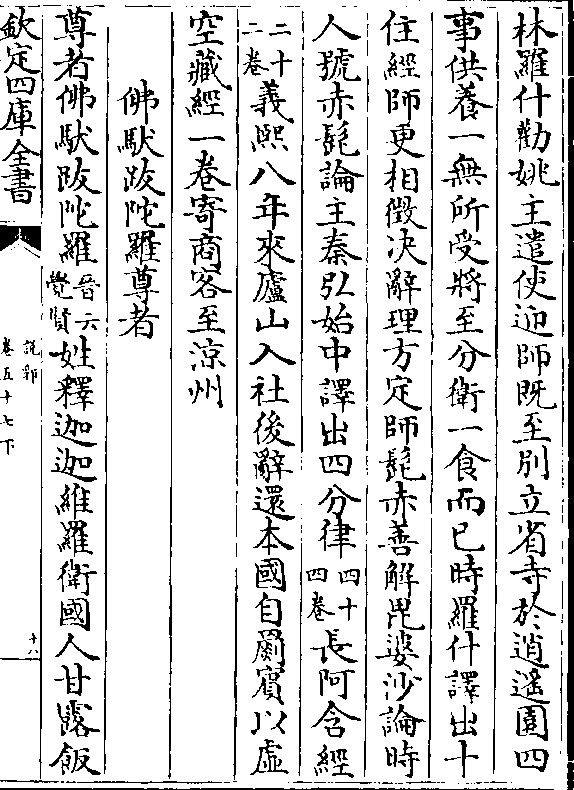 林羅什勸姚主遣使迎師既至别立省寺於逍遙園四
事供養一無所受將至分衛一食而已時羅什譯出十
住經師更相徵决辭理方定師髭赤善解毘婆沙論時
人號赤髭論主秦弘始中譯出四分律四十四卷長阿含經
二十二卷義熙八年來廬山入社後辭還本國自罽賓以虛
空藏經一卷寄商客至涼州
佛馱跋陀羅尊者
尊者佛馱跋陀羅晉云覺賢姓釋迦迦維羅衛國人甘露飯
欽定四庫全書
說郛
卷五十七下
十八